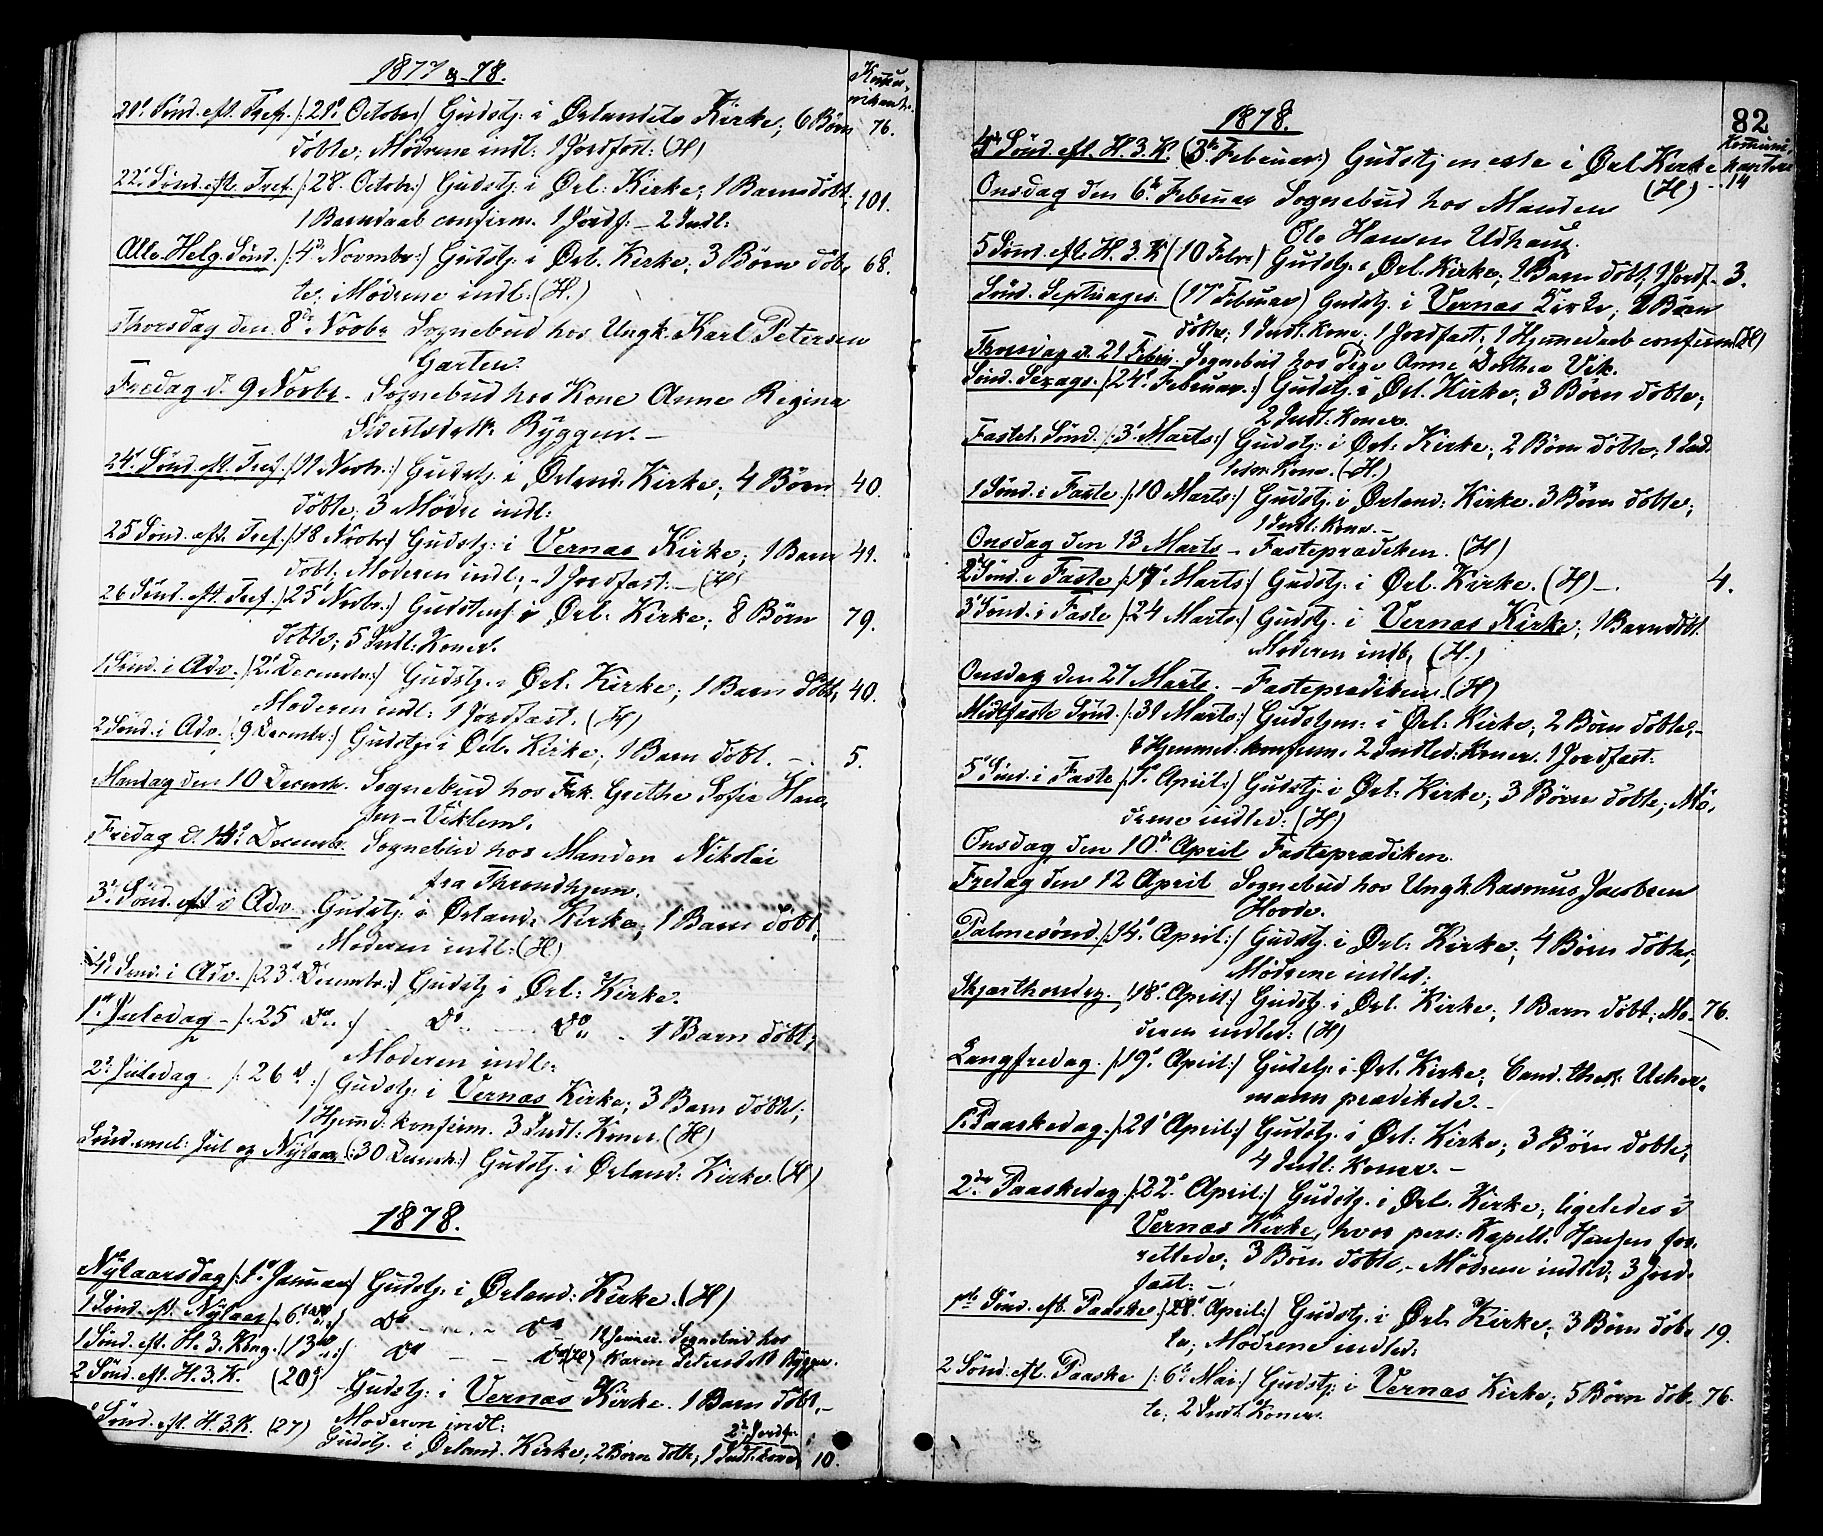 1877 & 78.
21d Sønd. eft. Tref. /:21d October/ Gudstj: i Ørlandets Kirke; 6 Børn 76.
døbte; Mødrene indl: 1 Jordfæst: (H)
22d Sønd. eft. Tref. /:28. Octobr:/ Gudstj: i Ørl: Kirke; 1 Barn døbt; 101.
1 Barnedaab confirm. 1 Jordf: – 2 Indl:
Alle Helg. Sønd. /:4d Novembr:/ Gudstj: i Ørl. Kirke; 3 Børn døb- 68.
te; Mødrene indl: (H.)
Thorsdag den 8de Novbr Sognebud hos Ungk. Karl Petersen
Garten.
Fredag d. 9 Novbr. Sognebud hos Kone Anne Regina
Ryggen. –
24d Sønd. eft. Tref. /:11 Novbr.:/ Gudstj. i Ørland. Kirke; 4 Børn 40.
døbte; 3 Mødre indl:
25 Sønd. eft. Tref. /:18 Novbr:/ Gudstj: i Vernæs Kirke; 1 Barn 41.
døbt; Moderen indl; – 1 Jordfæst: – (H)
26 Sønd. eft. Tref. /:25d Novbr.:/ Gudstj i Ørl: Kirke; 8 Børn 79.
døbte; 5 Indl: Koner.
1. Sønd. i Adv. /:2d Decembr:/ Gudstj. i Ørl. Kirke; 1 Barn døbt; 40.
Moderen indl: 1 Jordfæst. (H)
2 Sønd. i Adv. /:9 Decembr:/ Gudstj: i Ørl. Kirke; 1 Barn døbt. – 5.
Mandag den 10 Decembr. Sognebud hos Frk. Grethe Sofie Han-
sen – Viklem.
Fredag d. 14d Decembr. Sognebud hos Manden Nikolai
fra Throndhjem.
3d Sønd. eft i Adv. Gudstj: i Ørland. Kirke; 1 Barn døbt;
Moderen indl: (H)
4d Sønd. i Adv. /:23d Decembr:/ Gudstj i Ørl: Kirke.
1ste Juledag – /:25 Do:/ – Do – Do – 1 Barn døbt;
Moderen indl:
2d Juledag. /:26 d:/ Gudstj: i Vernæs Kirke; 3 Barn døbte;
1 Hjemmed: konfirm. 3 Indl: Koner (H)
Sønd. mel: Jul og Nytaar (:30 Decmbr:) Gudstj: i Ørland: Kirke. (H)
1878.
Nytaarsdag /:1d Januar/ Gudstj. i Ørland: Kirke. (H)
1 Sønd. eft. Nytaar /:6 Do:/ Do – – Do
12 Januar. Sognebud hos
1 Sønd. eft. H. 3. Kong. /:13 Do:/ Do – – Do (H) Karen Petersdatt Ryggen.
2 Sønd. eft. H. 3. K. (20d Gudstj: i Vernæs Kirke. 1 Barn døbt, –
Moderen indl:
2 Jordf:
Sønd. eft. H. 3. K. (27) Gudstj. i Ørland. Kirke; 2 Børn døbte; 1 Indl: Kone 10.
82
1878.
4de Sønd. eft. H. 3. K. (3de Februar:) Gudstjeneste i Ørl. Kirke
(H) – 14
Onsdag den 6te Februar Sognebud hos Manden
Ole Hansen Udhaug.
5 Sønd. eft. H. 3. K (10 Febr) Gudstj. i Ørl. Kirke; 1 Barn døbt; 1 Jordf. 3.
Sønd. Septuages. (17 Februar) Gudstj. i Vernæs Kirke; 2 Børn
døbte; 1 Indl. Kone; 1 Jordfæst; 1 Hjemmedaab confirm (H)
Thorsdag d. 21 Febr. Sognebud hos Pige Anne Dorthea Vik.
Sønd. Sexages. /:24d Februar.:/ Gudstj: i Ørl. Kirke; 3 Børn døbte;
2 Indl: Koner.
Fastel. Sønd. /:3d Marts:/ Gudstj: i Ørl. Kirke; 2 Børn døbte, 1 Ind-
ledn: Kone. (H.)
1 Sønd. i Faste /:10 Marts:/ Gudstj: i Ørland: Kirke. 3 Børn døbte;
1 Indl: Kone. –
Onsdag den 13 Marts – Fasteprædiken. (H)
2 Sønd. i Faste /:17d Marts:/ Gudstj: i Ørl. Kirke. (H) – 4.
3d Sønd. i Faste /:24 Marts:/ Gudstj. i Vernæs Kirke; 1 Barn døbt
Moderen indl; (H.)
Onsdag den 27 Marts. – Fasteprædiken. (H)
Midtfaste Sønd. /:31 Marts:/ Gudstjen: i Ørl: Kirke; 2 Børn døbte, –
1 Hjemmed: konfirm. 2 Indled: Koner. 1 Jordfæst:
5d Sønd. i Faste /:7. April:/ Gudstj: i Ørl: Kirke; 3 Børn døbte; Mø-
drene indled: (H)
Onsdag den 10de April Fasteprædiken.
Fredag den 12 April Sognebud hos Ungk. Rasmus Jacobsen
Hovde.
Palmesønd. /:14d April:/ Gudstj. i Ørl: Kirke; 4 Børn døbte;
Mødrene indled.
Skjærthorsdag. /:18d April:/ Gudstj: i Ørl. Kirke; 1 Barn døbt; Mo- 76.
deren indled: (H)
Langfredag. /:19d April:/ Gudstj: i Ørl. Kirke; Cand. theol: Ucher-
mann prædikede. –
1. Paaskedag. /:21d April:/ Gudstj. i Ørl: Kirke; 3 Børn døbte;
4 Indl: Koner. –
2den Paaskedag /:22d April:/ Gudstj. i Ørl. Kirke, ligeledes i
Vernæs Kirke, hvor pers: Kapell. Hansen for-
rettede; 3 Børn døbte, – Mødrene indled; 3 Jord-
fæst: –
1ste Sønd. eft. Paaske /:28d April:/ Gudstj: i Ørl. Kirke; 3 Børn døb- 19.
te; Mødrene indled:
2 Sønd. eft. Paaske /:6d Mai:/ Gudstj: i Vernæs Kirke; 5 Børn døb- 76.
te; 2 Indl. Koner.